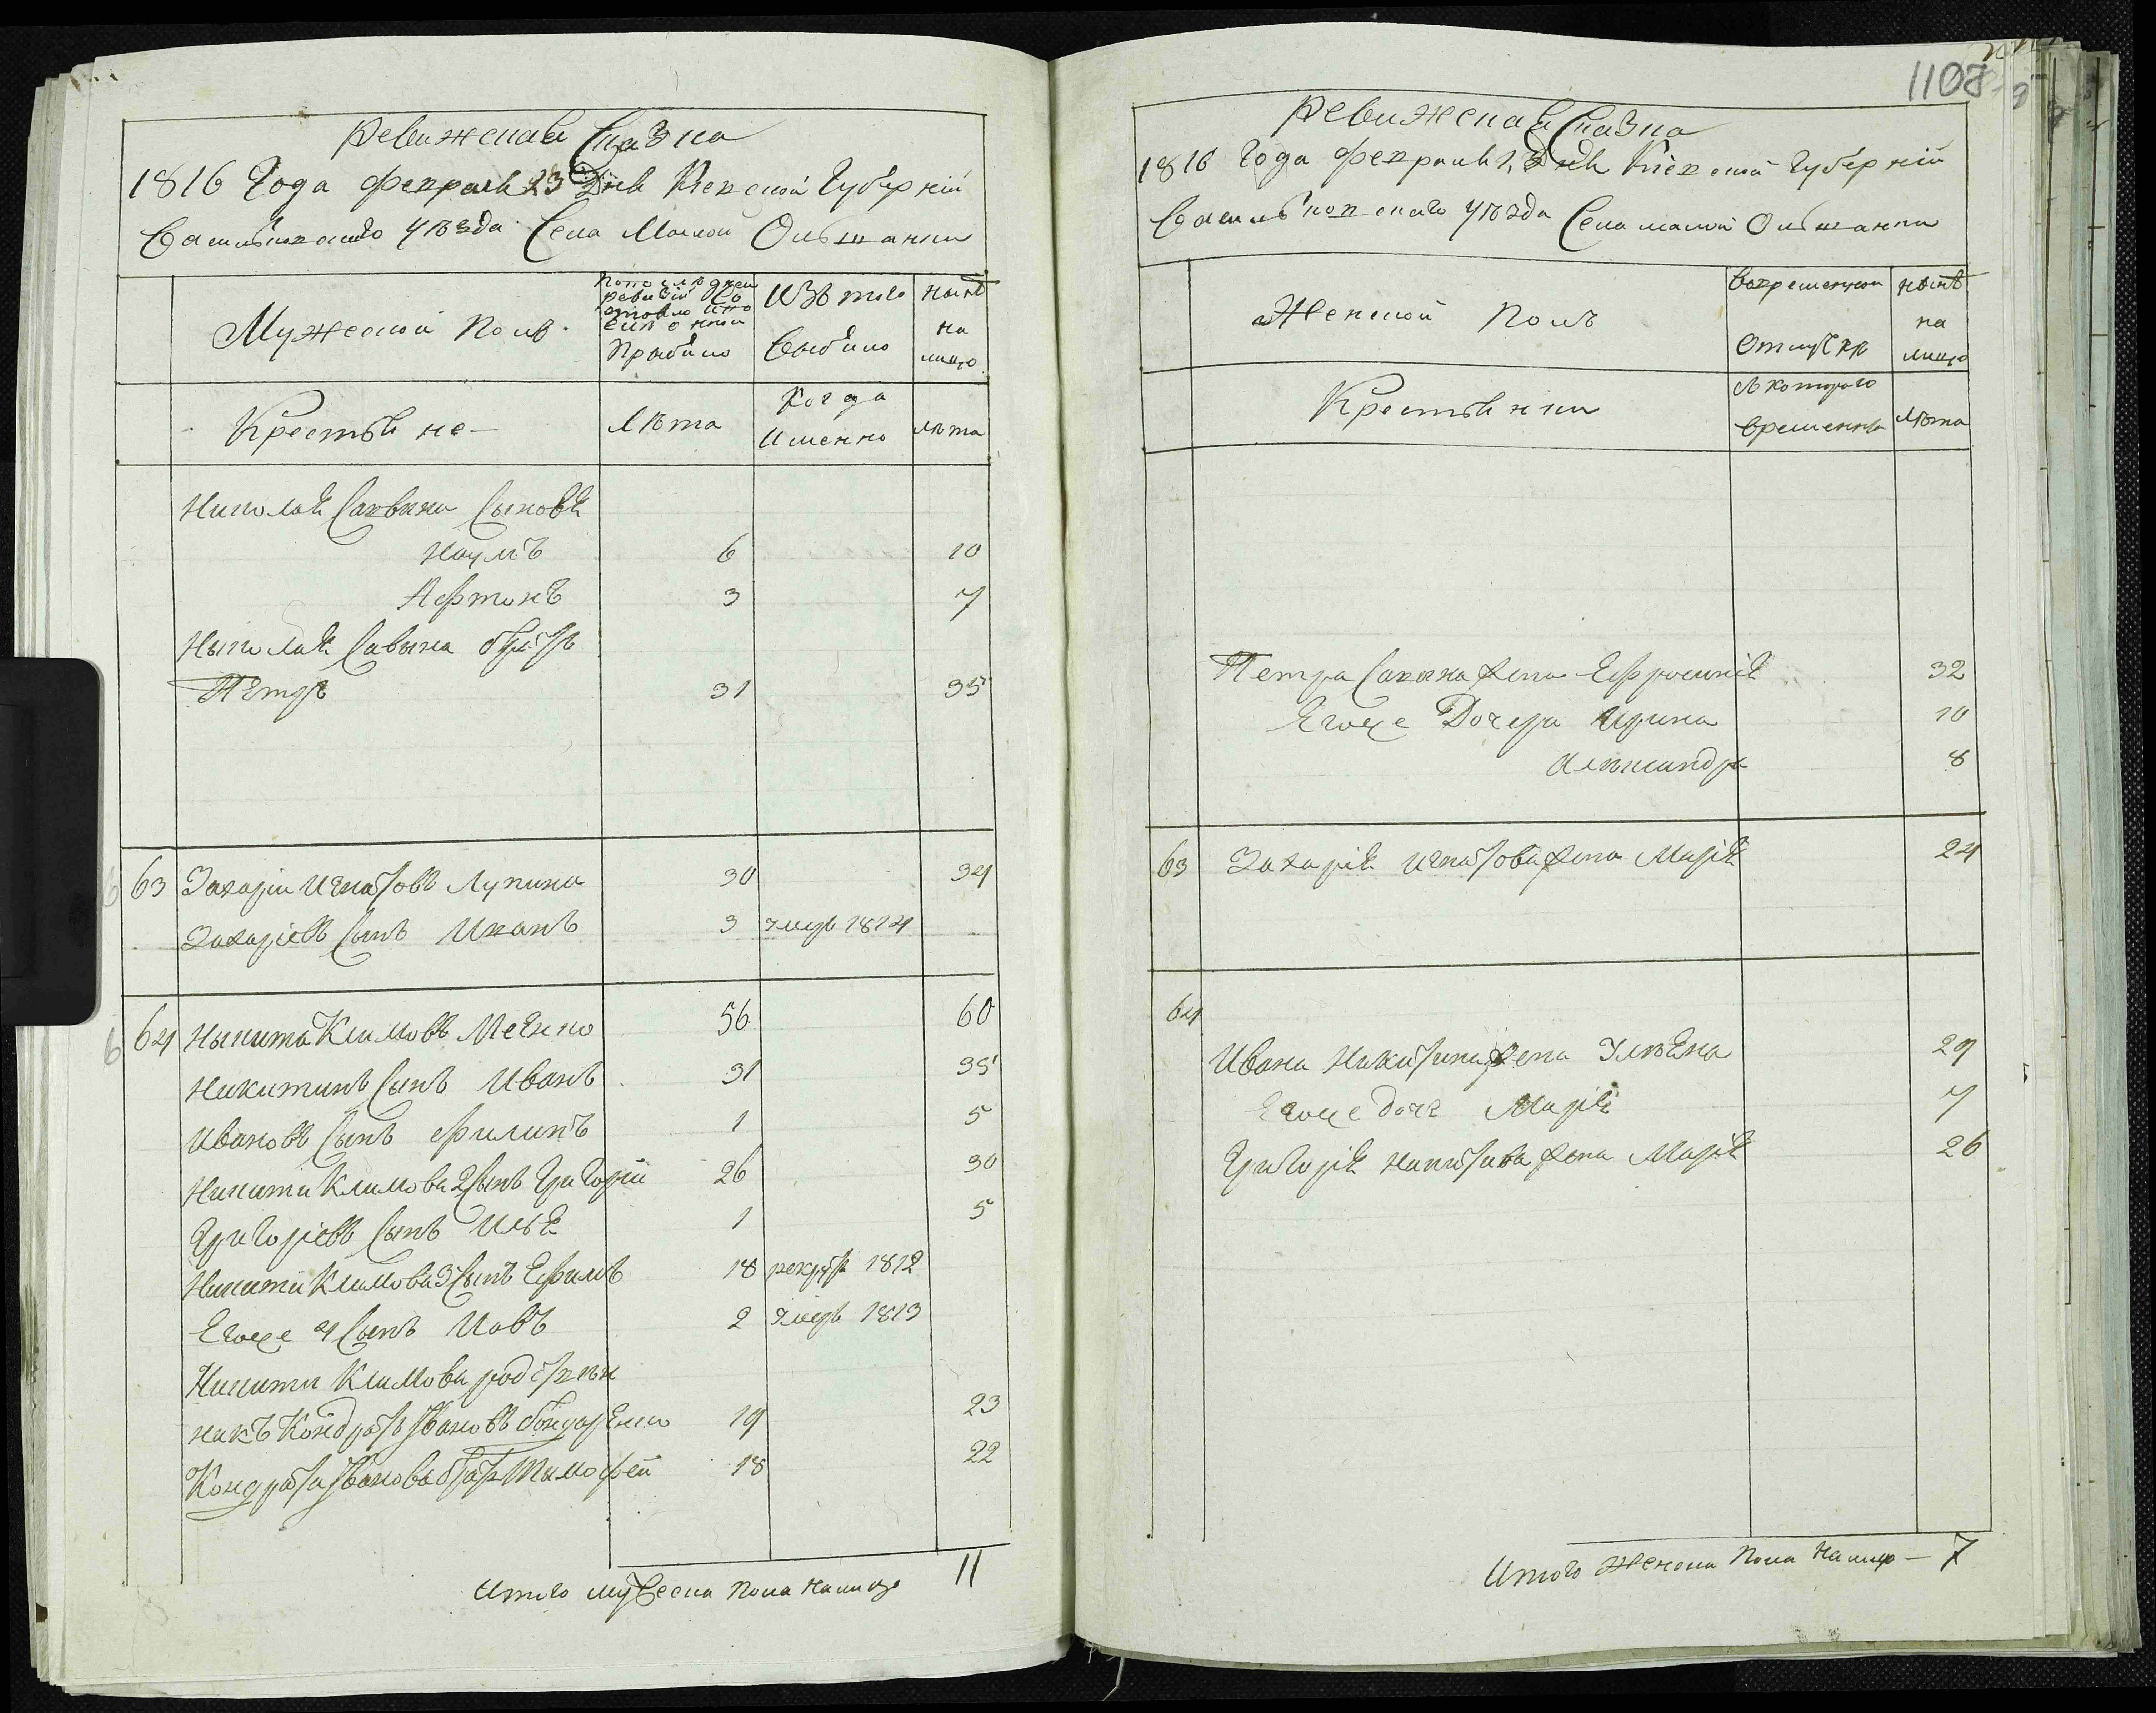 Ревижская Сказка
1816 Года Февраля 23 Дня Киевской Губерніи
Васильковского уѣзда Села Малой Ольшанки
Мужеской Полъ
По последней ревизіи состояло и после оной Прыбыло
Изъ того Выбыло
нынѣ на лицо
Крестьяне
Лѣта
Когда Именно
лѣта
Николая Саввина Сыновя
Наумъ 6 10
3 7
Николая Савына братъ
Петръ 31 35
63 Захарій Игнатовъ Лупина 30 34
Захаріевъ Сынъ Иванъ 3 умеръ 1814
64 Никита Климовъ 56 60
Никитинъ Сынъ Иванъ 31 35
Ивановъ Сынъ Филипъ 1 5
Никити Климова 2 Сынъ Григорій 26 30
Григоріевъ Сынъ Илья 1 5
Никити Климова 3 Сынъ Ефимъ 18 рекрутъ 1812
Егоже 4 Сынъ Иовъ 2 умеръ 1813
Никити Климова родствен
никъ Кондратъ Ивановъ Бондаренко 19 23
Кондрата Иванова братъ Тимофей 18 22
Итого мужеска Пола налицо 11
1108
Ревижская Сказка
1816 Года Февраля Дня Кіевской Губерніи
Васильковскаго уѣзда Села малой Ольшанки
Женской Полъ
Вовременной Отлучке
нынѣ на лицо
Крестьянки
Съ которого времени
Лѣта
Петра Савина жена Ефросинія 32
Егоже Дочери Ирина 10
Александра 8
63 Захарія Игнатова жена Марія 24
64
Ивана Никитина жена 29
Егоже дочь Марія 7
Григорія Никитина жена Марія 26
Итого женска Пола Налицо — 7